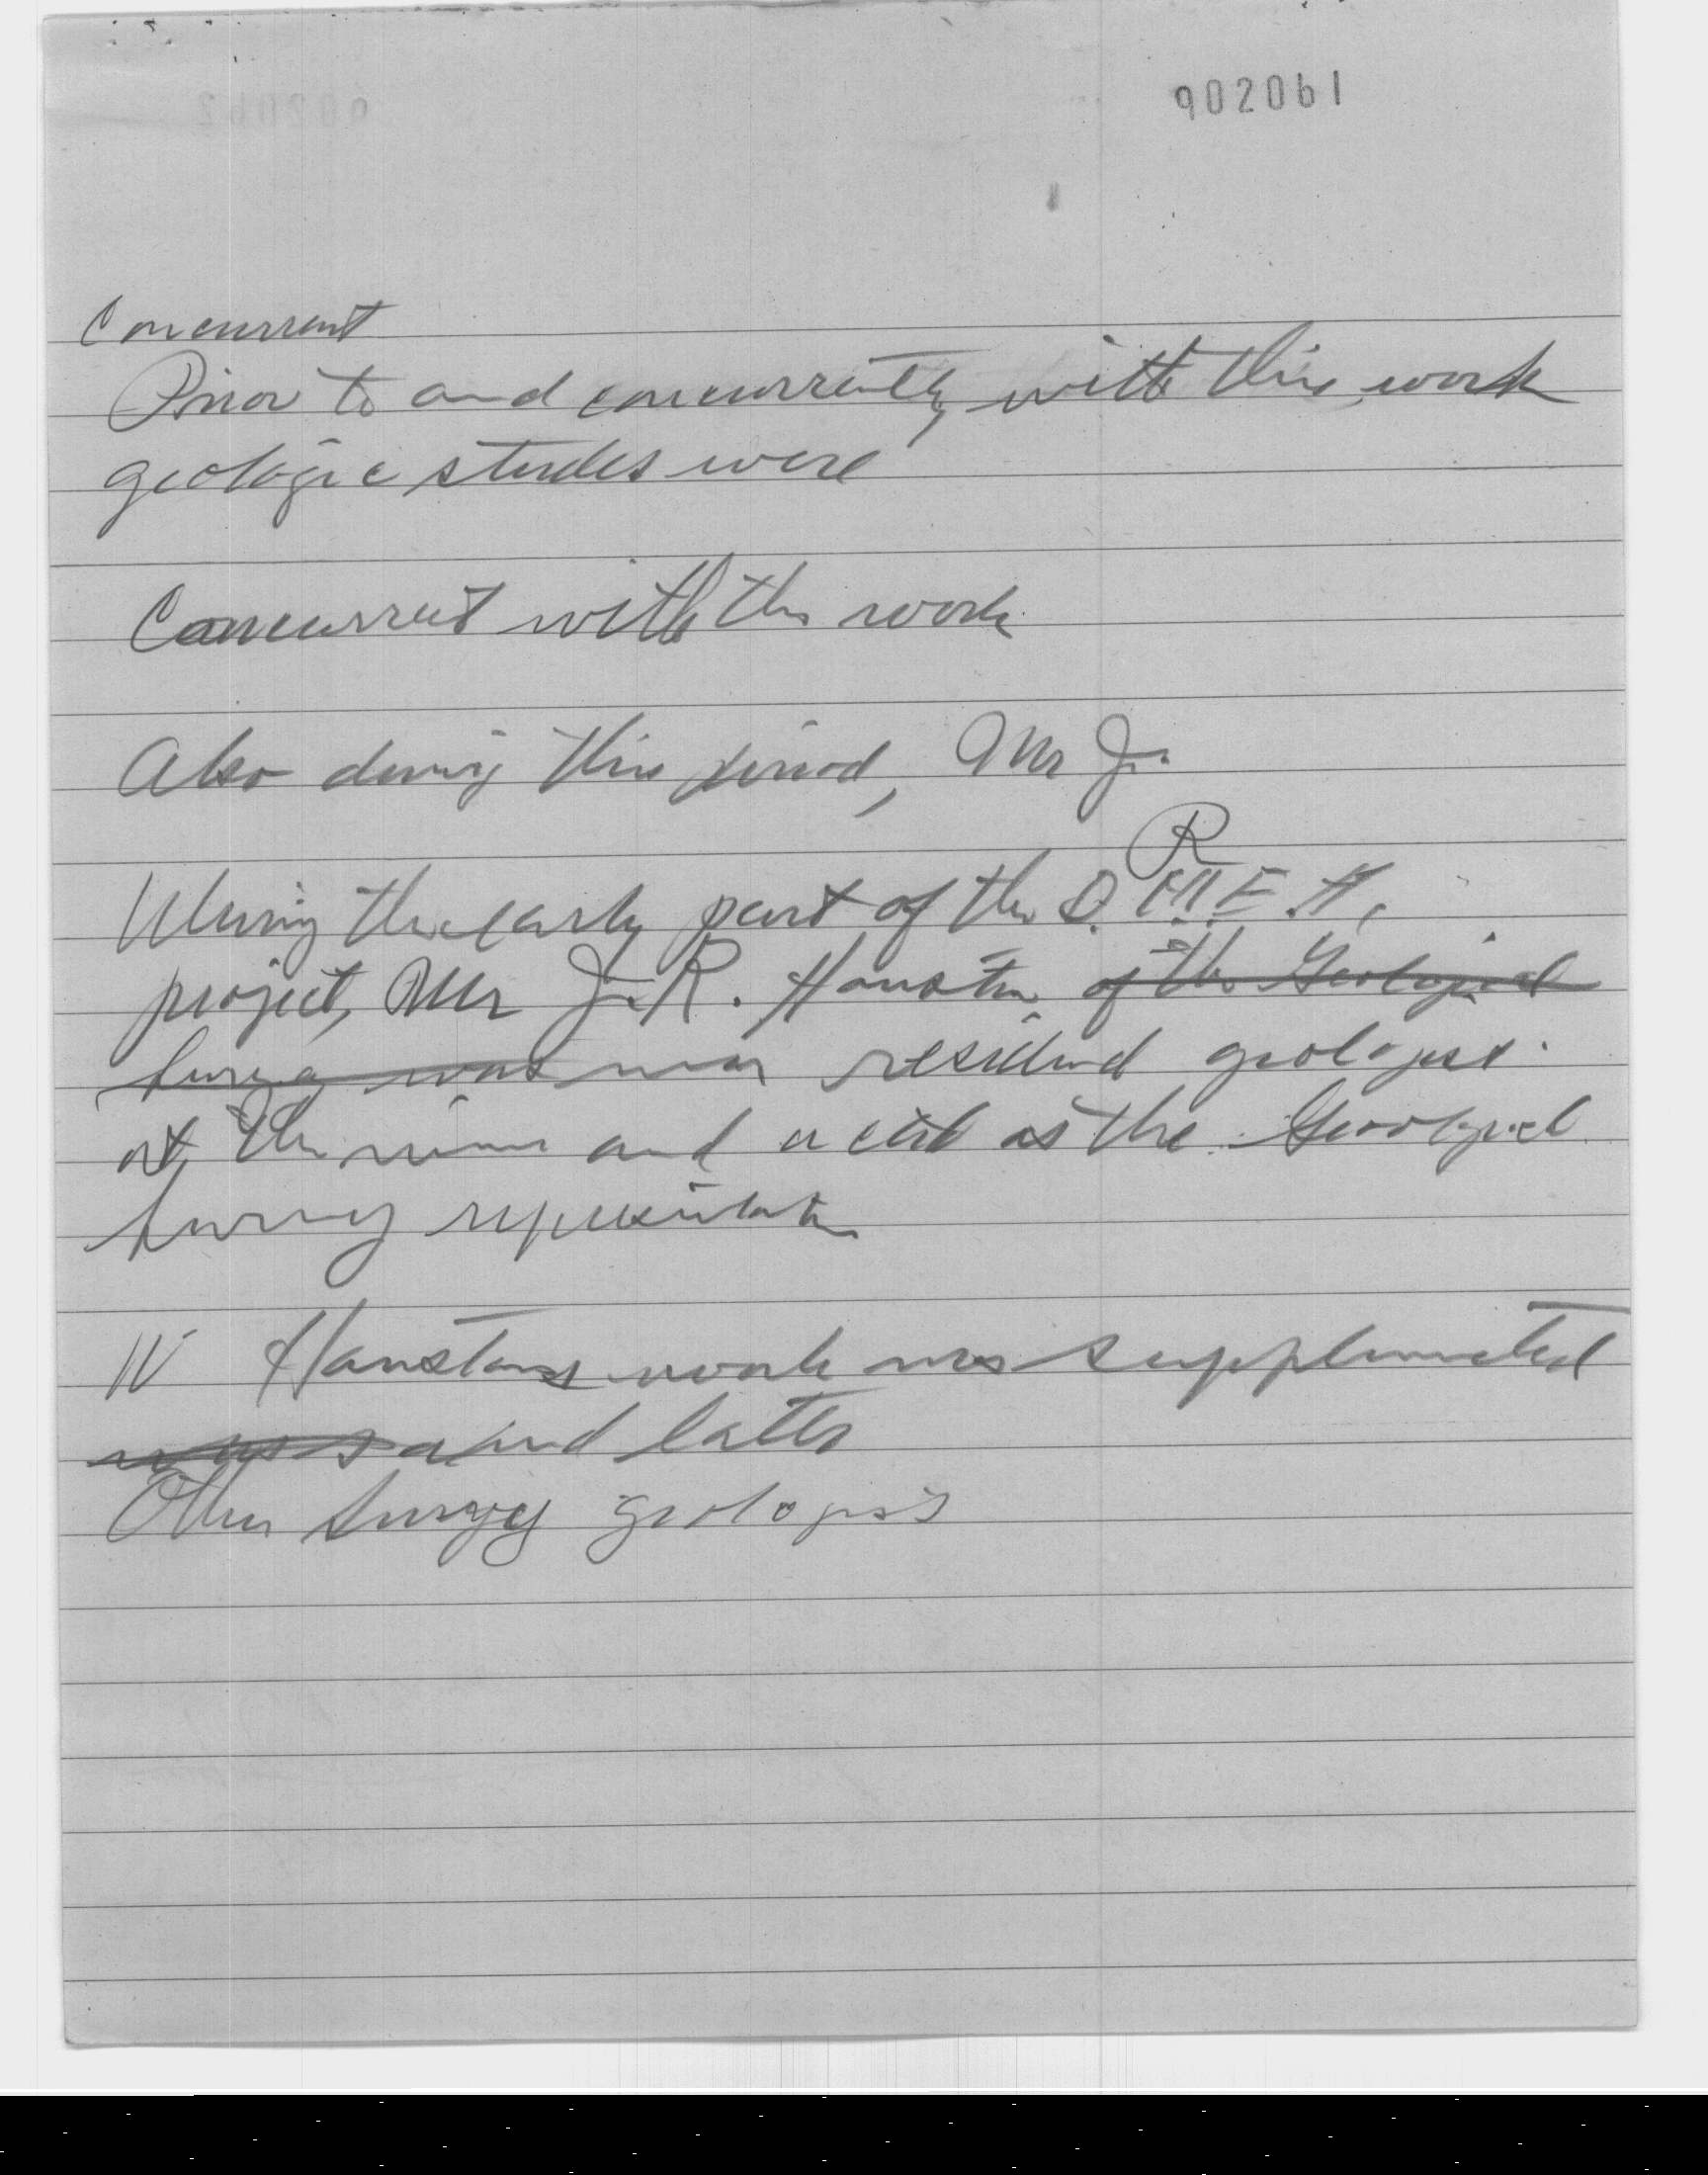 902061
Concurrent
Prior to and concurrently with this work
geologic studies were
Concurrent with this work
Also during this period, Mr J.
During the early part of the D.M.E.A.
R
project, Mr J. R. Houston of the Geological
Survey was was resident geologist
at the mine and acted as the Geological
Survey representative
Houstons work was supplemented
was and later
Other Survey geologists